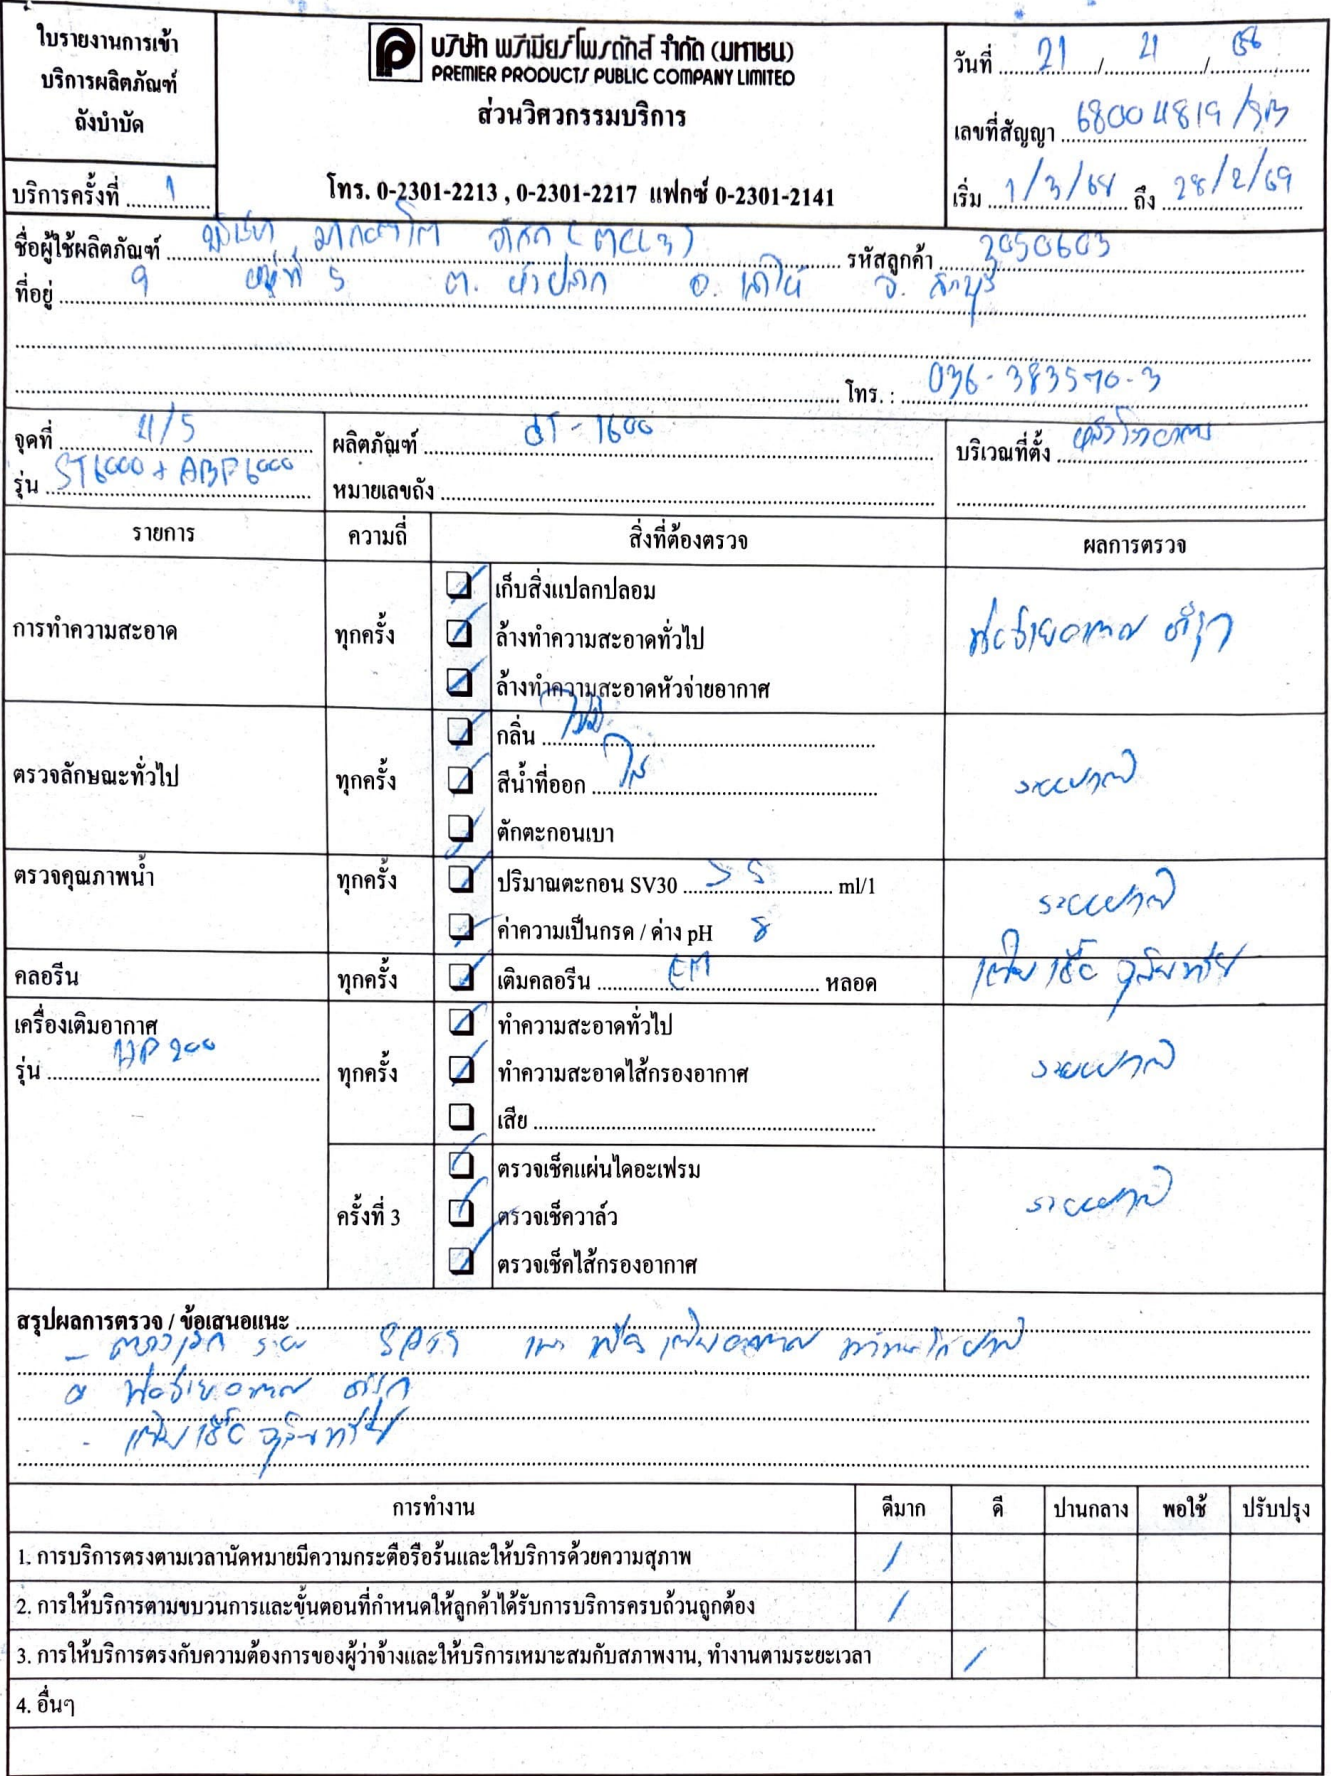 ใบรายงานการเข้า
บริการผลิตภัณฑ์
ถังบำบัด
บริการครั้งที่ 1
บริษัท พรีเมียร์โพรดักส์ จำกัด (มหาชน)
PREMIER PRODUCTS PUBLIC COMPANY LIMITED
ส่วนวิศวกรรมบริการ
โทร. 0-2301-2213 , 0-2301-2217 แฟกซ์ 0-2301-2141
วันที่ 21 / 4 / 68
เลขที่สัญญา 68004819/
เริ่ม 1/3/68 ถึง 28/2/69
ชื่อผู้ใช้ผลิตภัณฑ์ รหัสลูกค้า 2050603
ที่อยู่ 9 หมู่ที่ 5 ต. อ. จ.
โทร. : 036-383570-3
จุดที่ 4/5
รุ่น ST6000 + ABF6000
ผลิตภัณฑ์ -1600
หมายเลขถัง
บริเวณที่ตั้ง หลังโรงอาหาร
รายการ ความถี่ สิ่งที่ต้องตรวจ ผลการตรวจ
การทำความสะอาด ทุกครั้ง
เก็บสิ่งแปลกปลอม
ล้างทำความสะอาดทั่วไป
ล้างทำความสะอาดหัวจ่ายอากาศ
ท่อจ่ายอากาศ ชำรุด
ตรวจลักษณะทั่วไป ทุกครั้ง
กลิ่น ไม่มี
สีน้ำที่ออก ใส
ตักตะกอนเบา
ระบบปกติ
ตรวจคุณภาพน้ำ ทุกครั้ง
ปริมาณตะกอน SV30 35 ml/1
ค่าความเป็นกรด / ด่าง pH 8
ระบบปกติ
คลอรีน ทุกครั้ง เติมคลอรีน EM หลอด เติมเชื้อจุลินทรีย์
เครื่องเติมอากาศ
รุ่น HP 200
ทุกครั้ง
ทำความสะอาดทั่วไป
ทำความสะอาดไส้กรองอากาศ
เสีย
ระบบปกติ
ครั้งที่ 3
ตรวจเช็คแผ่นไดอะเฟรม
ตรวจเช็ควาล์ว
ตรวจเช็คไส้กรองอากาศ
ระบบปกติ
สรุปผลการตรวจ / ข้อเสนอแนะ
- ตรวจเช็ค ระบบ เติมอากาศ
ท่อจ่ายอากาศ ชำรุด
- เติมเชื้อจุลินทรีย์
การทำงาน ดีมาก ดี ปานกลาง พอใช้ ปรับปรุง
1. การบริการตรงตามเวลานัดหมายมีความกระตือรือร้นและให้บริการด้วยความสุภาพ /
2. การให้บริการตามขบวนการและขั้นตอนที่กำหนดให้ลูกค้าได้รับการบริการครบถ้วนถูกต้อง /
3. การให้บริการตรงกับความต้องการของผู้ว่าจ้างและให้บริการเหมาะสมกับสภาพงาน, ทำงานตามระยะเวลา /
4. อื่นๆ